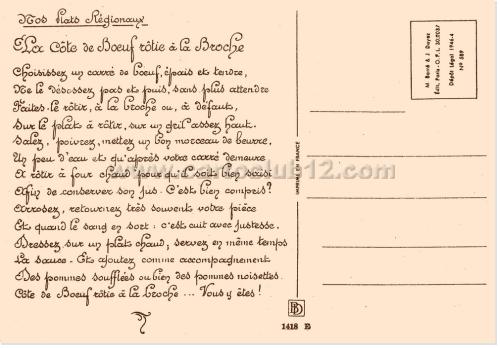 Nos Plats Régionaux
La Côte de Bœuf rôtie à la Broche
Choisissez un carré de bœuf, épais et tendre,
Ne le désossez pas et puis, sans plus attendre
Faites-le rôtir, à la broche ou, à défaut,
Sur le plats à rôtir, sur un gril assez haut.
Salez, poivrez, mettez un bon morceau de beurre,
Un peu d'eau et qu'après votre carré demeure
A rôtir à four chaud pour qu'il soit bien saisi
Afin de conserver son jus. C'est bien compris?
Arrosez, retournez très souvent votre pièce
Et quand le sang en sort: c'est cuit avec justesse.
Dressez sur un plats chaud, servez en même temps
La sauce. Et ajoutez comme accompagnement
Des pommes soufflées ou bien des pommes noisettes.
Côte de Bœuf rôtie à la broche ... Vous y êtes!
www.cartoclub12.com
IMPRIMÉ EN FRANCE
BD
1418 E
M. Barré & J. Dayez
Édit. Paris - O.P.L.
Dépôt Légal 1946-4
N° 589